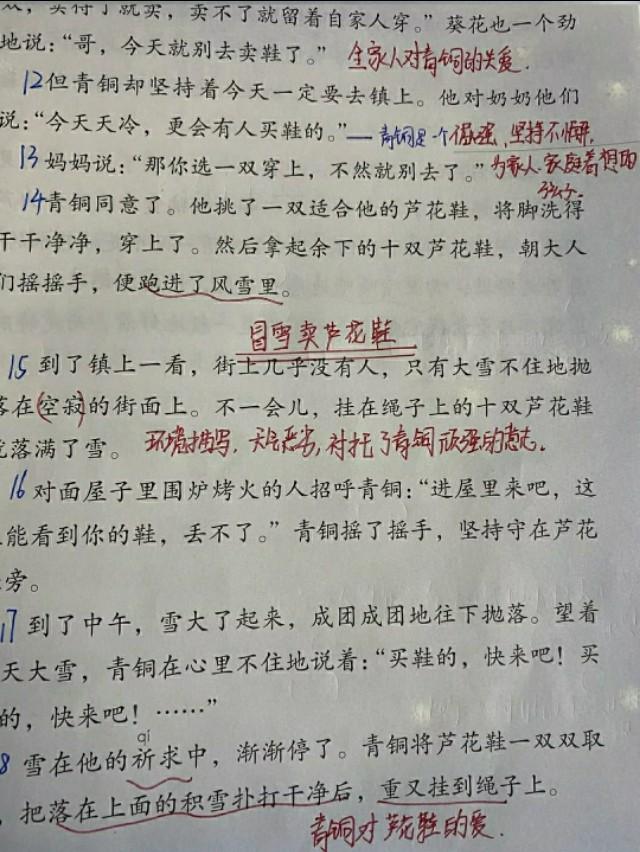 卖得了就买，卖不了就留着自家人穿。”葵花也一个劲
地说：“哥，今天就别去卖鞋了。” 全家人对青铜的关爱.
12但青铜却坚持着今天一定要去镇上。他对奶奶他们
说：“今天天冷，更会有人买鞋的。”——青铜是个倔强,坚持不懈,
13妈妈说：“那你选一双穿上，不然就别去了。” 为家人.家庭着想的
孩子.
14青铜同意了。他挑了一双适合他的芦花鞋，将脚洗得
干干净净，穿上了。然后拿起余下的十双芦花鞋，朝大人
们摇摇手，便跑进了风雪里。
冒雪卖芦花鞋
15到了镇上一看，街上几乎没有人，只有大雪不住地抛
落在(空寂)的街面上。不一会儿，挂在绳子上的十双芦花鞋
就落满了雪。 环境描写.天气恶劣,衬托了青铜顽强的意志.
16对面屋子里围炉烤火的人招呼青铜：“进屋里来吧，这
能看到你的鞋，丢不了。”青铜摇了摇手，坚持守在芦花
旁。
17到了中午，雪大了起来，成团成团地往下抛落。望着
天大雪，青铜在心里不住地说着：“买鞋的，快来吧！买
的，快来吧！……”
qí
8雪在他的祈求中，渐渐停了。青铜将芦花鞋一双双取
，把落在上面的积雪扑打干净后，重又挂到绳子上。
青铜对芦花鞋的爱.